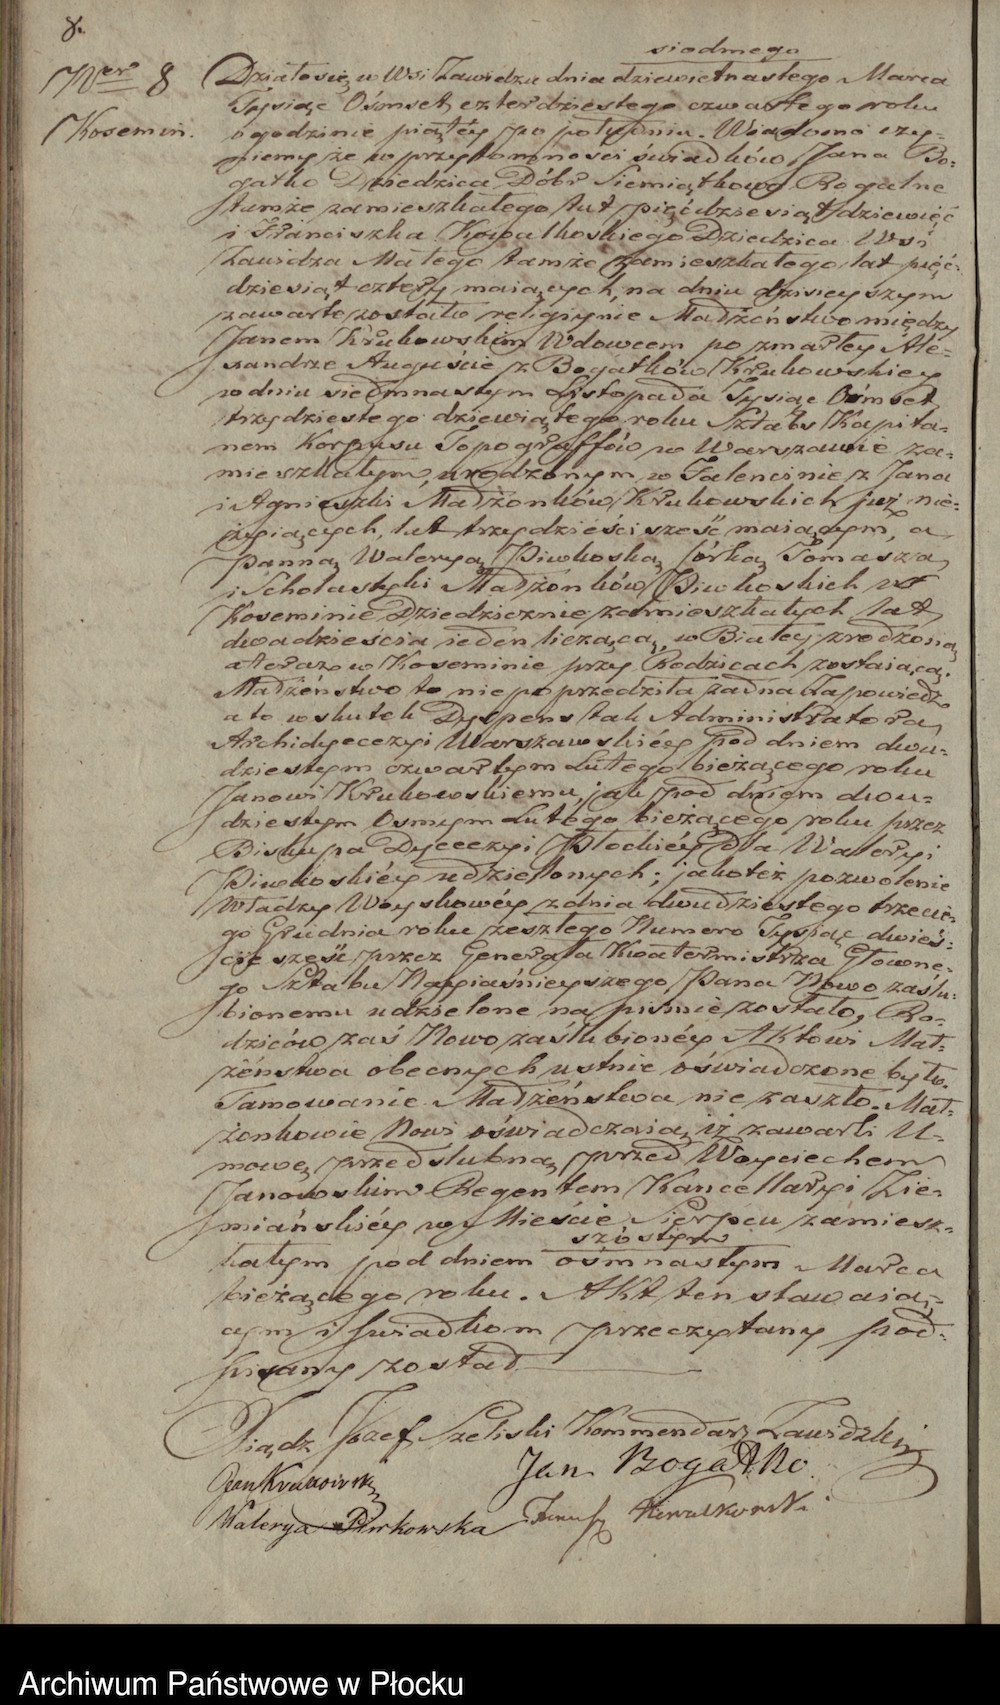 8.
siodmego
Ner 8 Działo się w Wsi Zawidzu dnia dziewietnastego Marca
Tysiąc Ośmset czterdziestego czwartego roku
Kosemin. o godzinie piątéy po południu. Wiadomo czy-
niemy że w przytomności świadków Jana Bo-
gatko Dziedzica Dóbr Siemiątkowo Rogalne
tamże zamieszkałego lat pięćdziesiąt dziewięć
i Franciszka Kowalkoskiego Dziedzica Wsi
Zawidza Małego tamże zamieszkałego lat pięć-
dziesiąt cztery maiących, na dniu dzisieyszym
zawarte zostało religiynie Małżeństwo między
Janem Krukowskim Wdowcem po zmarłey Ale-
xandrze Auguście z Bogatków Krukowskiey
w dniu siedmnastym Listopada Tysiąc Ośmset
trzydziestego dziewiątego roku Sztabs Kapita-
nem Korpusu Topograffów w Warszawie za-
mieszkałym, urodzonym w Falencinie z Jana
i Agnieszki Małżonków Krukowskich już nie-
żyiących, lat trzydzieści sześć maiącym, a
Panną Waleryą Piwkoską Córką Tomasza
i Scholastyki Małżonków Piwkoskich w
Koseminie Dziedzicznie zamieszkałych lat
dwadzieścia ieden liczącą, w Białey zrodzoną
a teraz w Koseminie przy Rodzicach zostaiącą.
Małżeństwo to nie poprzedziła żadna Zapowiedź
a to w skutek Dyspens tak Administratora
Archidyecezyi Warszawskiéy pod dniem dwu-
dziestym czwartym Lutego bieżącego roku
Janowi Krukowskiemu, jak pod dniem dwu-
dziestym Osmym Lutego bieżącego roku przez
Biskupa Dyecezyi Płockiéy dla Waleryi
Piwkoskiéy udzielonych; jakoteż pozwolenie
Władzy Woyskowéy z dnia dwudziestego trzecie-
go Grudnia roku zeszłego Numero Tysiąc dwieś-
cie sześć przez Generała Kwatermistrza Głowne-
go Sztabu Nayiaśnieyszego Pana Nowo zaślu-
bionemu udzielone na piśmie zostało, Ro-
dziców zaś Nowo zaślubionéy Aktowi Mał-
żeństwa obecnych ustnie oświadczone było.
Tamowanie Małżeństwa nie zaszło. Mał-
żonkowie Nowi oświadczaią, iż zawarli U-
mowę przedślubną przed Woyciechem
Janowskim Regentem Kancellaryi Zie-
miańskiéy w Mieście Sierpcu zamiesz-
szóstym
kałym pod dniem ośmnastym Marca
bieżącego roku. Akt ten stawaią-
cym i świadkom przeczytany pod-
pisany został.
Xiądz Józef Szeliski Kommendarz Zawidzki
Jan Krukowski Jan Bogatko
Walerya Piwkowska Kowalkowski